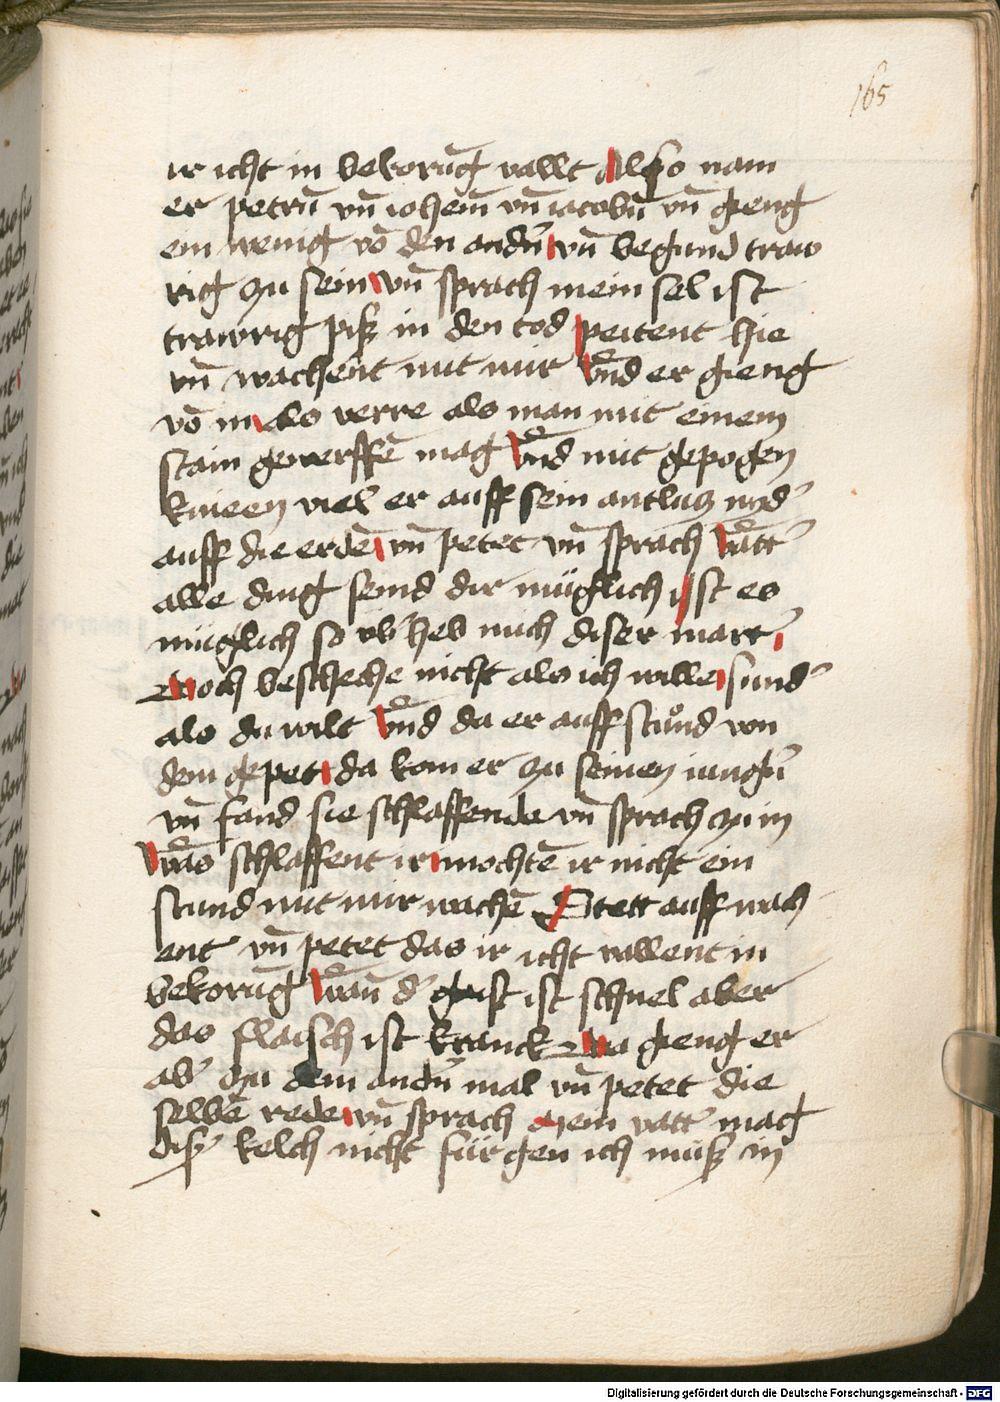 165
ir icht in bekorūg vallt Also nam
er petrū vn̄ iohem̄ vn̄ iacobū vn̄ gieng
ein wenig vō den andn̄ vn̄ begund traw
rig zu sein vn̄ sprach mein sel ist
trawrig piß in den tod peitent hie
vn̄ wachent mit mir Vnd er gieng
vō in als verre als man mit einem
stain gewerffē mag Vnd mit gepogen
knieen viel er auff sein antlutz nyd'
auff die erdē vn̄ petet vn̄ sprach Vatt'
alle ding seind dir müglich ist es
müglich so vb' heb mich diser mart'
Doch bescheche nicht als ich wille sund'
als du wilt Vnd da er auff stůnd von
dem gepet da kom er zu seinen iungn̄
vn̄ fand sie schlaffende vn̄ sprach zu in
Was schlaffent ir mochtē ir nicht ein
stund mit mir wachē Stett auff wach
ent vn̄ petet das ir icht vallent in
bekorūg Wan̄ d' geist ist schnel aber
das flaisch ist kranck Da gieng er
ab' zu dem andn̄ mal vn̄ petet die
selbē rede vn̄ sprach Mein vatt' mag
diß' kelch nicht für gen ich müß in
Digitalisierung gefördert durch die Deutsche Forschungsgemeinschaft - DFG